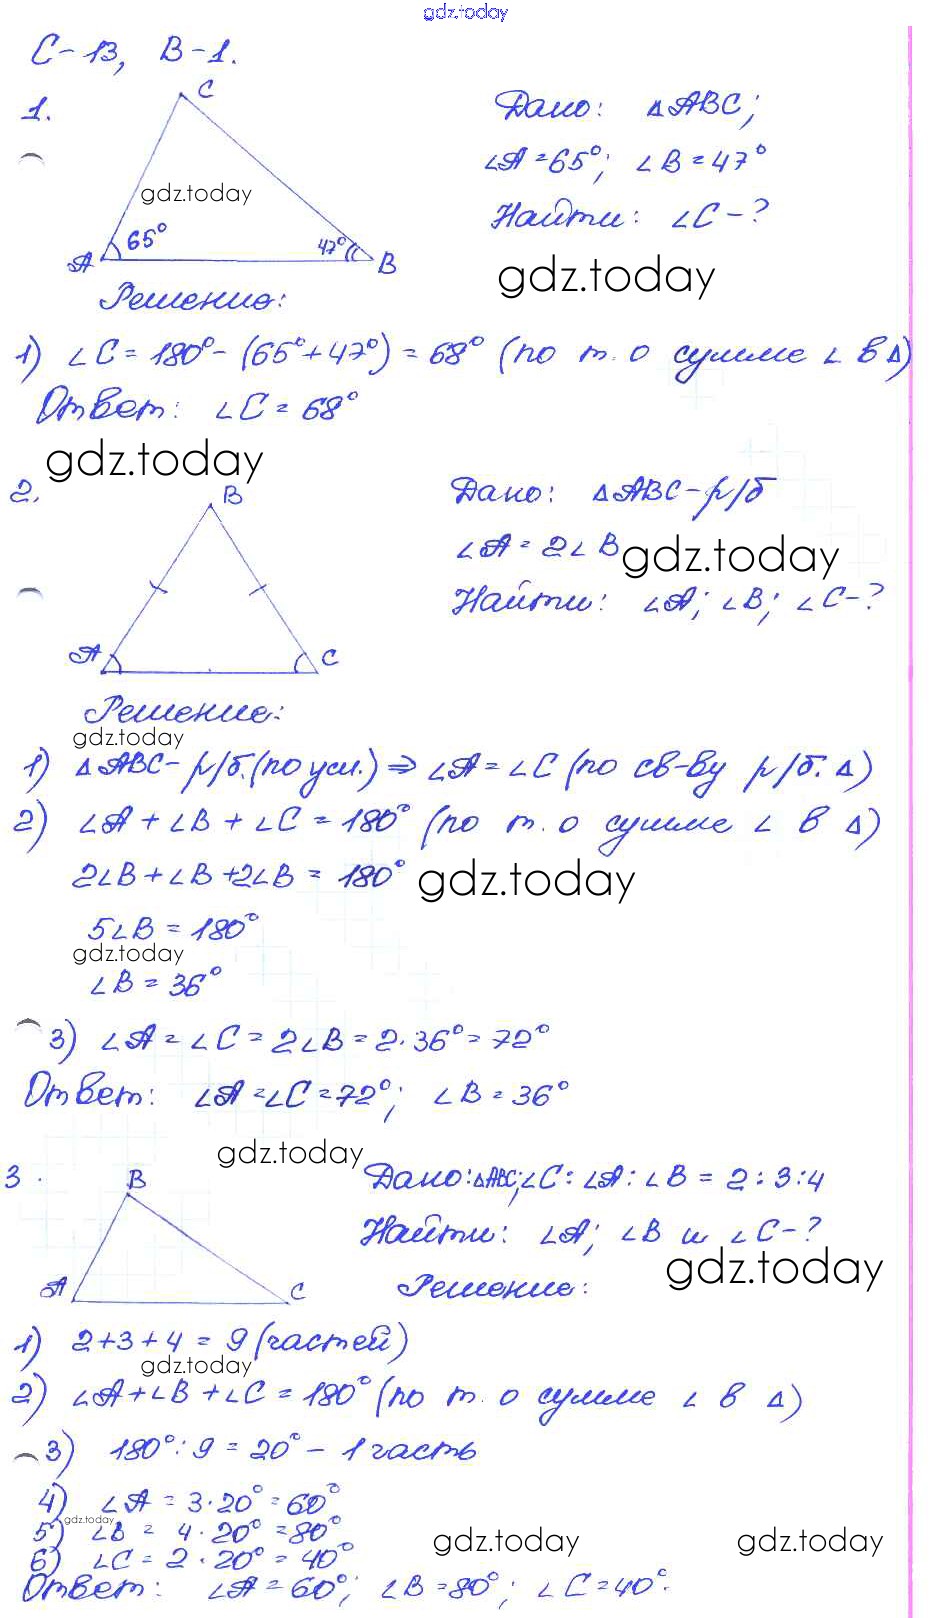 gdz.today
С-13, В-1.
1.
C
gdz.today
A 65° 47° B
Дано: △ABC;
∠A=65°; ∠B=47°
Найти: ∠C-?
gdz.today
Решение:
1) ∠C = 180° - (65°+47°) = 68° (по т. о сумме ∠ в △)
Ответ: ∠C = 68°
gdz.today
2.
B
A C
Дано: △ABC-р/б
∠A = 2∠B
gdz.today
Найти: ∠A; ∠B; ∠C-?
Решение:
gdz.today
1) △ABC- р/б.(по усл.) ⇒ ∠A = ∠C (по св-ву р/б. △)
2) ∠A + ∠B + ∠C = 180° (по т. о сумме ∠ в △)
2∠B + ∠B + 2∠B = 180°
gdz.today
5∠B = 180°
gdz.today
∠B = 36°
3) ∠A = ∠C = 2∠B = 2·36° = 72°
Ответ: ∠A = ∠C = 72°; ∠B = 36°
gdz.today
3.
B
A C
Дано: △ABC; ∠C : ∠A : ∠B = 2:3:4
Найти: ∠A; ∠B и ∠C-?
gdz.today
Решение:
1) 2+3+4 = 9 (частей)
gdz.today
2) ∠A + ∠B + ∠C = 180° (по т. о сумме ∠ в △)
3) 180° : 9 = 20° - 1 часть
4) ∠A = 3·20° = 60°
gdz.today
5) ∠B = 4·20° = 80°
gdz.today gdz.today
6) ∠C = 2·20° = 40°
Ответ: ∠A = 60°; ∠B = 80°; ∠C = 40°.